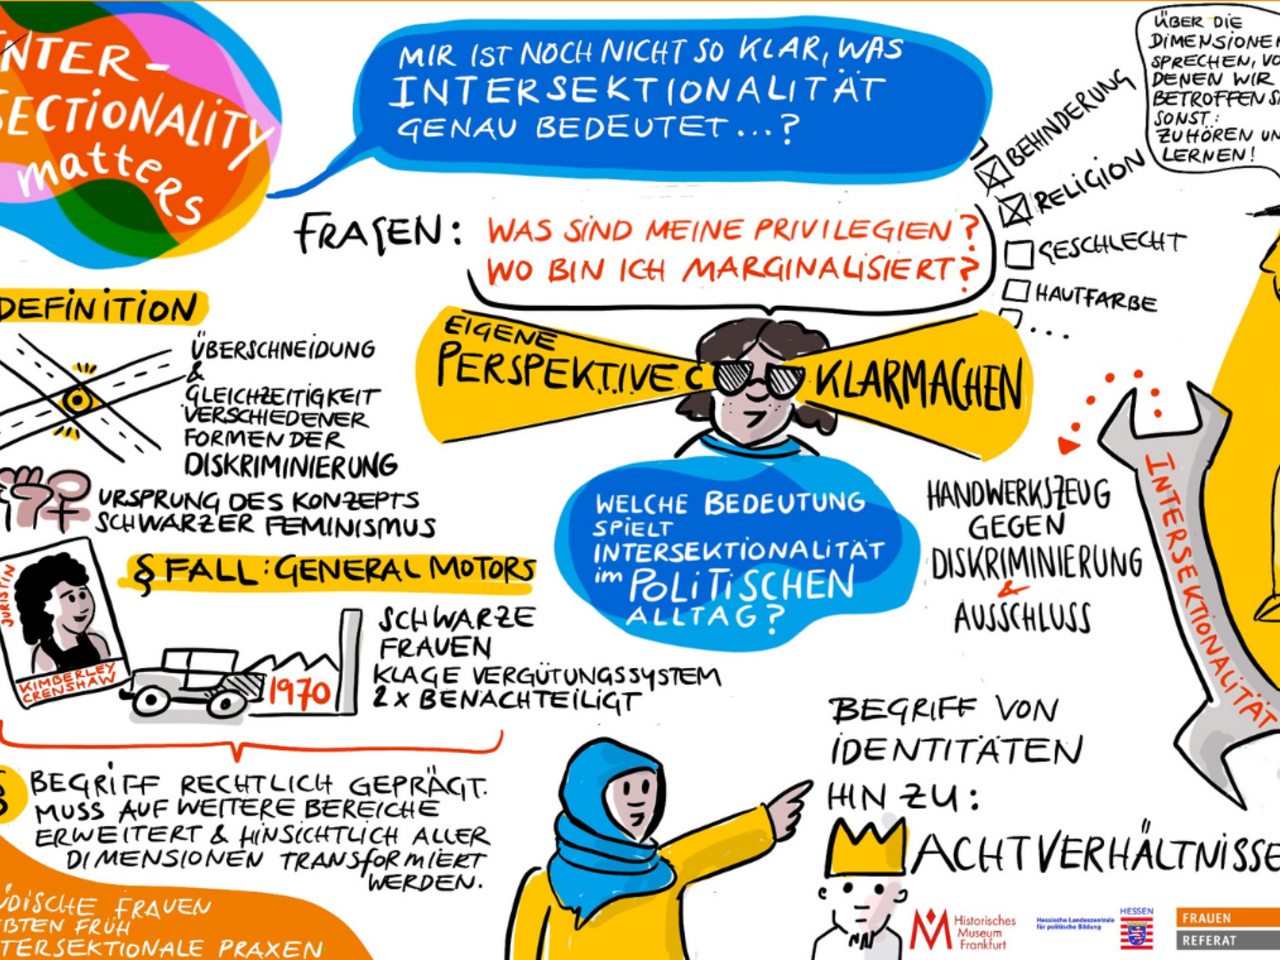 INTER-
SECTIONALITY
matters
MIR IST NOCH NICHT SO KLAR, WAS
INTERSEKTIONALITÄT
GENAU BEDEUTET...?
FRAGEN:
WAS SIND MEINE PRIVILEGIEN?
WO BIN ICH MARGINALISIERT?
BEHINDERUNG
RELIGION
GESCHLECHT
HAUTFARBE
...
ÜBER DIE
DIMENSIONEN
SPRECHEN, VO
DENEN WIR
BETROFFEN S
SONST:
ZUHÖREN UN
LERNEN!
DEFINITION
ÜBERSCHNEIDUNG
&
GLEICHZEITIGKEIT
VERSCHIEDENER
FORMEN DER
DISKRIMINIERUNG
URSPRUNG DES KONZEPTS
SCHWARZER FEMINISMUS
EIGENE
PERSPEKTIVE
KLARMACHEN
WELCHE BEDEUTUNG
SPIELT
INTERSEKTIONALITÄT
im POLITISCHEN
ALLTAG?
HANDWERKSZEUG
GEGEN
DISKRIMINIERUNG
&
AUSSCHLUSS
INTERSEKTIONALITÄT
§ FALL: GENERAL MOTORS
JURISTIN
KIMBERLEY
CRENSHAW
1970
SCHWARZE
FRAUEN
KLAGE VERGÜTUNGSSYSTEM
2 x BENACHTEILIGT
§
BEGRIFF RECHTLICH GEPRÄGT.
MUSS AUF WEITERE BEREICHE
ERWEITERT & HINSICHTLICH ALLER
DIMENSIONEN TRANSFORMIERT
WERDEN.
ÜDISCHE FRAUEN
EBTEN FRÜH
NTERSEKTIONALE PRAXEN
BEGRIFF VON
IDENTITÄTEN
HIN ZU:
ACHTVERHÄLTNISSE
Historisches
Museum
Frankfurt
Hessische Landeszentrale
für politische Bildung
HESSEN
FRAUEN
REFERAT